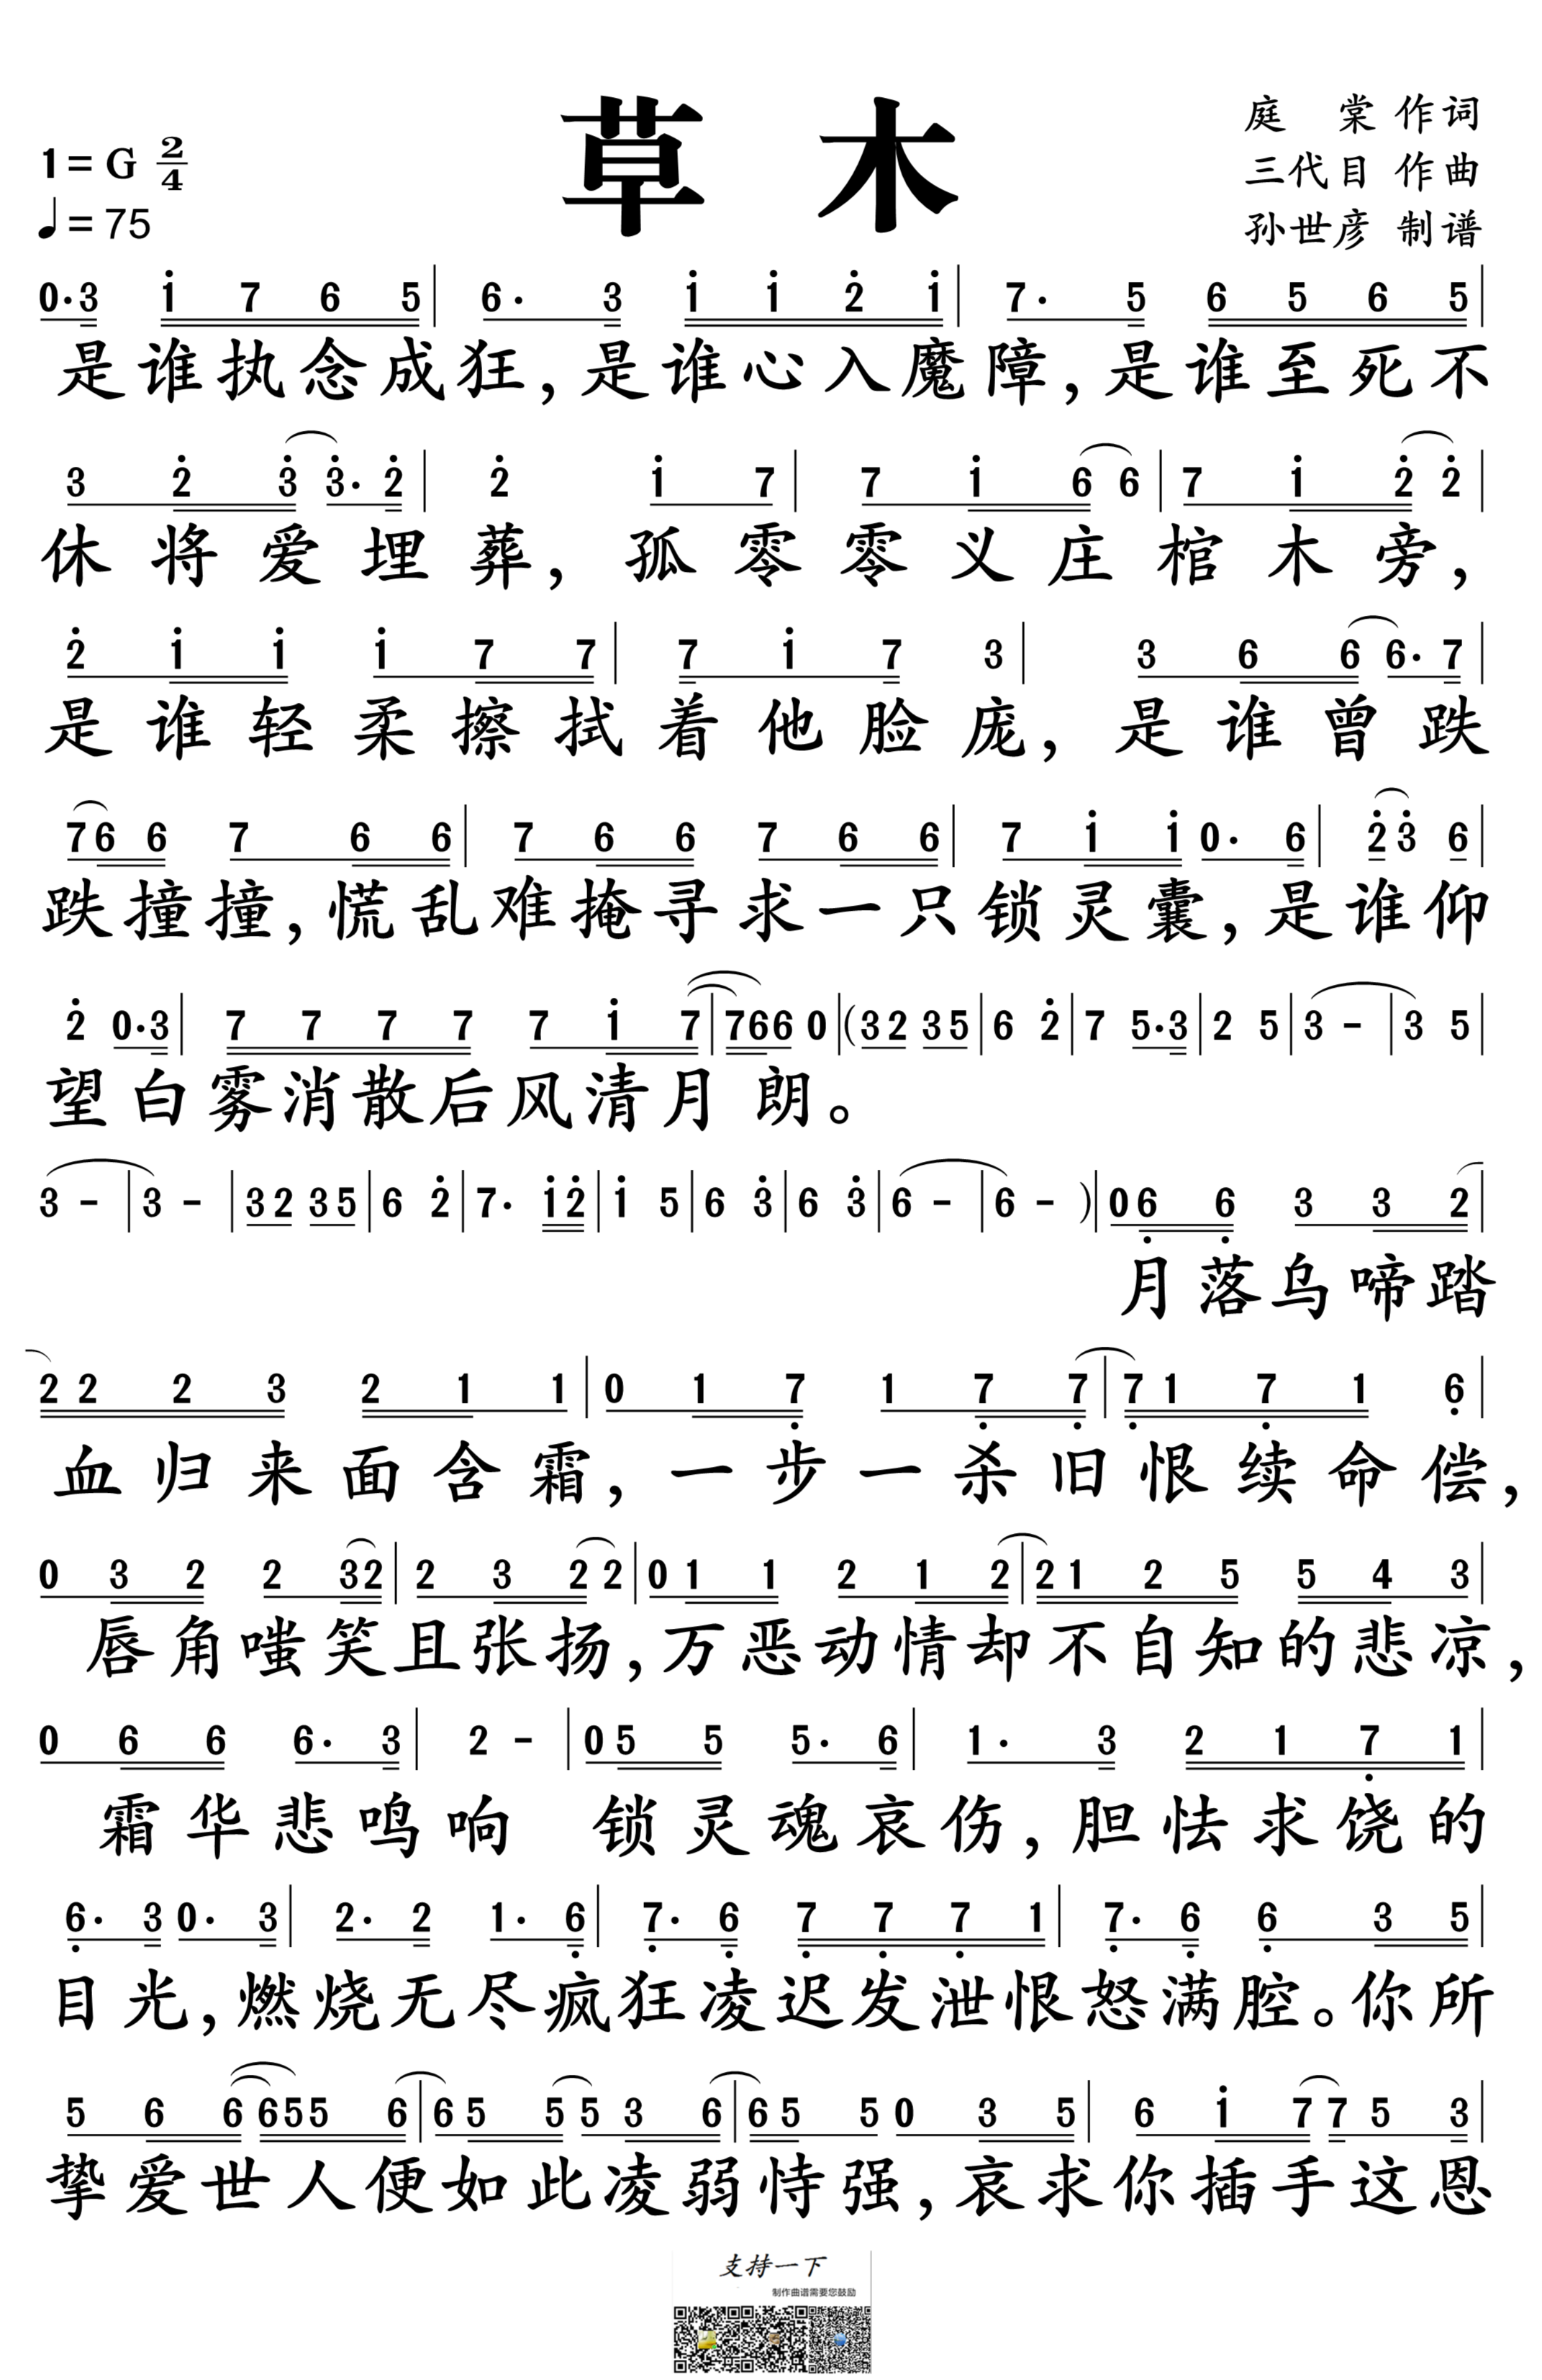 草 木
庭 棠 作词
三代目 作曲
孙世彦 制谱
1= G 2/4
♩= 75
0·3 i 7 6 5 | 6· 3 i i 2̇ i | 7· 5 6 5 6 5 |
是谁执念成狂,是谁心入魔障,是谁至死不
3 2̇ 3̇ 3̇· 2̇ | 2̇ i 7 | 7 i 6 6 | 7 i 2̇ 2̇ |
休将爱埋葬,孤零零义庄棺木旁,
2̇ i i i 7 7 | 7 i 7 3 | 3 6 6 6· 7 |
是谁轻柔擦拭着他脸庞,是谁曾跌
7 6 6 7 6 6 | 7 6 6 7 6 6 | 7 i i 0· 6 | 2̇ 3̇ 6 |
跌撞撞,慌乱难掩寻求一只锁灵囊,是谁仰
2̇ 0·3 | 7 7 7 7 7 i 7 | 7 6 6 0 | (3 2 3 5 | 6 2̇ | 7 5·3 | 2 5 | 3 - | 3 5 |
望白雾消散后风清月 朗。
3 - | 3 - | 3 2 3 5 | 6 2̇ | 7· i 2̇ | i 5 | 6 3̇ | 6 3̇ | 6 - | 6 - ) | 0 6̣ 6̣ 3 3 2 |
月落乌啼踏
2 2 2 3 2 1 1 | 0 1 7̣ 1 7̣ 7̣ | 7̣ 1 7̣ 1 6̣ |
血归来面含霜,一步一杀旧恨续命偿,
0 3 2 2 3 2 | 2 3 2 2 | 0 1 1 2 1 2 | 2 1 2 5 5 4 3 |
唇角嗤笑且张扬,万恶动情却不自知的悲凉,
0 6 6 6· 3 | 2 - | 0 5 5 5· 6 | 1· 3 2 1 7̣ 1 |
霜华悲鸣响 锁灵魂哀伤,胆怯求饶的
6̣· 3 0· 3 | 2· 2 1· 6̣ | 7̣· 6̣ 7̣ 7̣ 7̣ 1 | 7̣· 6̣ 6̣ 3 5 |
目光,燃烧无尽疯狂凌迟发泄恨怒满腔。你所
5 6 6 6 5 5 6 | 6 5 5 5 3 6 | 6 5 5 0 3 5 | 6 i 7 7 5 3 |
挚爱世人便如此凌弱恃强,哀求你插手这恩
支持一下
制作曲谱需要您鼓励